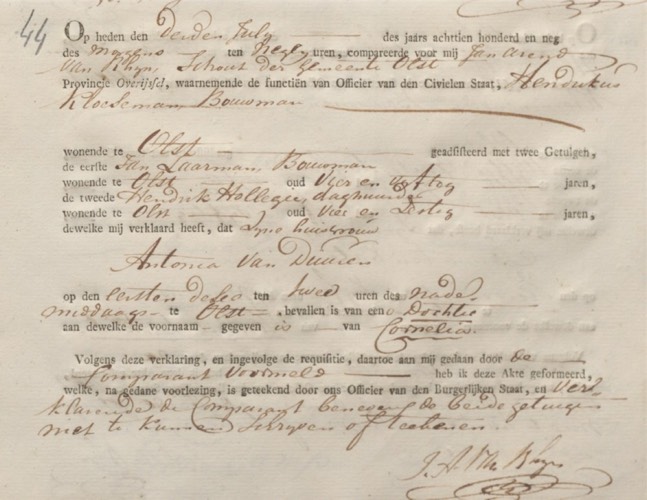 44
Op heden den derden July des jaars achttien honderd en neg
des morgens ten negen uren, compareerde voor mij Jan Arend
Van Rhijn, Schout der Gemeente Olst
Provincie Overijssel, waarnemende de functiën van Officier van den Civielen Staat, Hendrikus
Kloeseman, Bouwman
wonende te Olst geadsisteerd met twee Getuigen,
de eerste Jan Laarman, Bouwman
wonende te Olst oud Vier en jaren,
de tweede Hendrik Holleger, daghuurder
wonende te Olst oud Vier en Zestig jaren,
dewelke mij verklaard heeft, dat Zyne huisvrouw
Antonia Van Duuren
op den eersten deses ten twee uren des nade
middaags te Olst bevallen is van eene Dochter
aan dewelke de voornaam gegeven is van Cornelia.
Volgens deze verklaring, en ingevolge de requisitie, daartoe aan mij gedaan door de
Comparant Voormeld heb ik deze Akte geformeerd,
welke, na gedane voorlezing, is geteekend door ons Officier van den Burgerlijken Staat, en Ver-
klarende de Comparant benevens de beide getuigen
niet te kunnen schryven of teekenen.
J. A. Van Rhijn